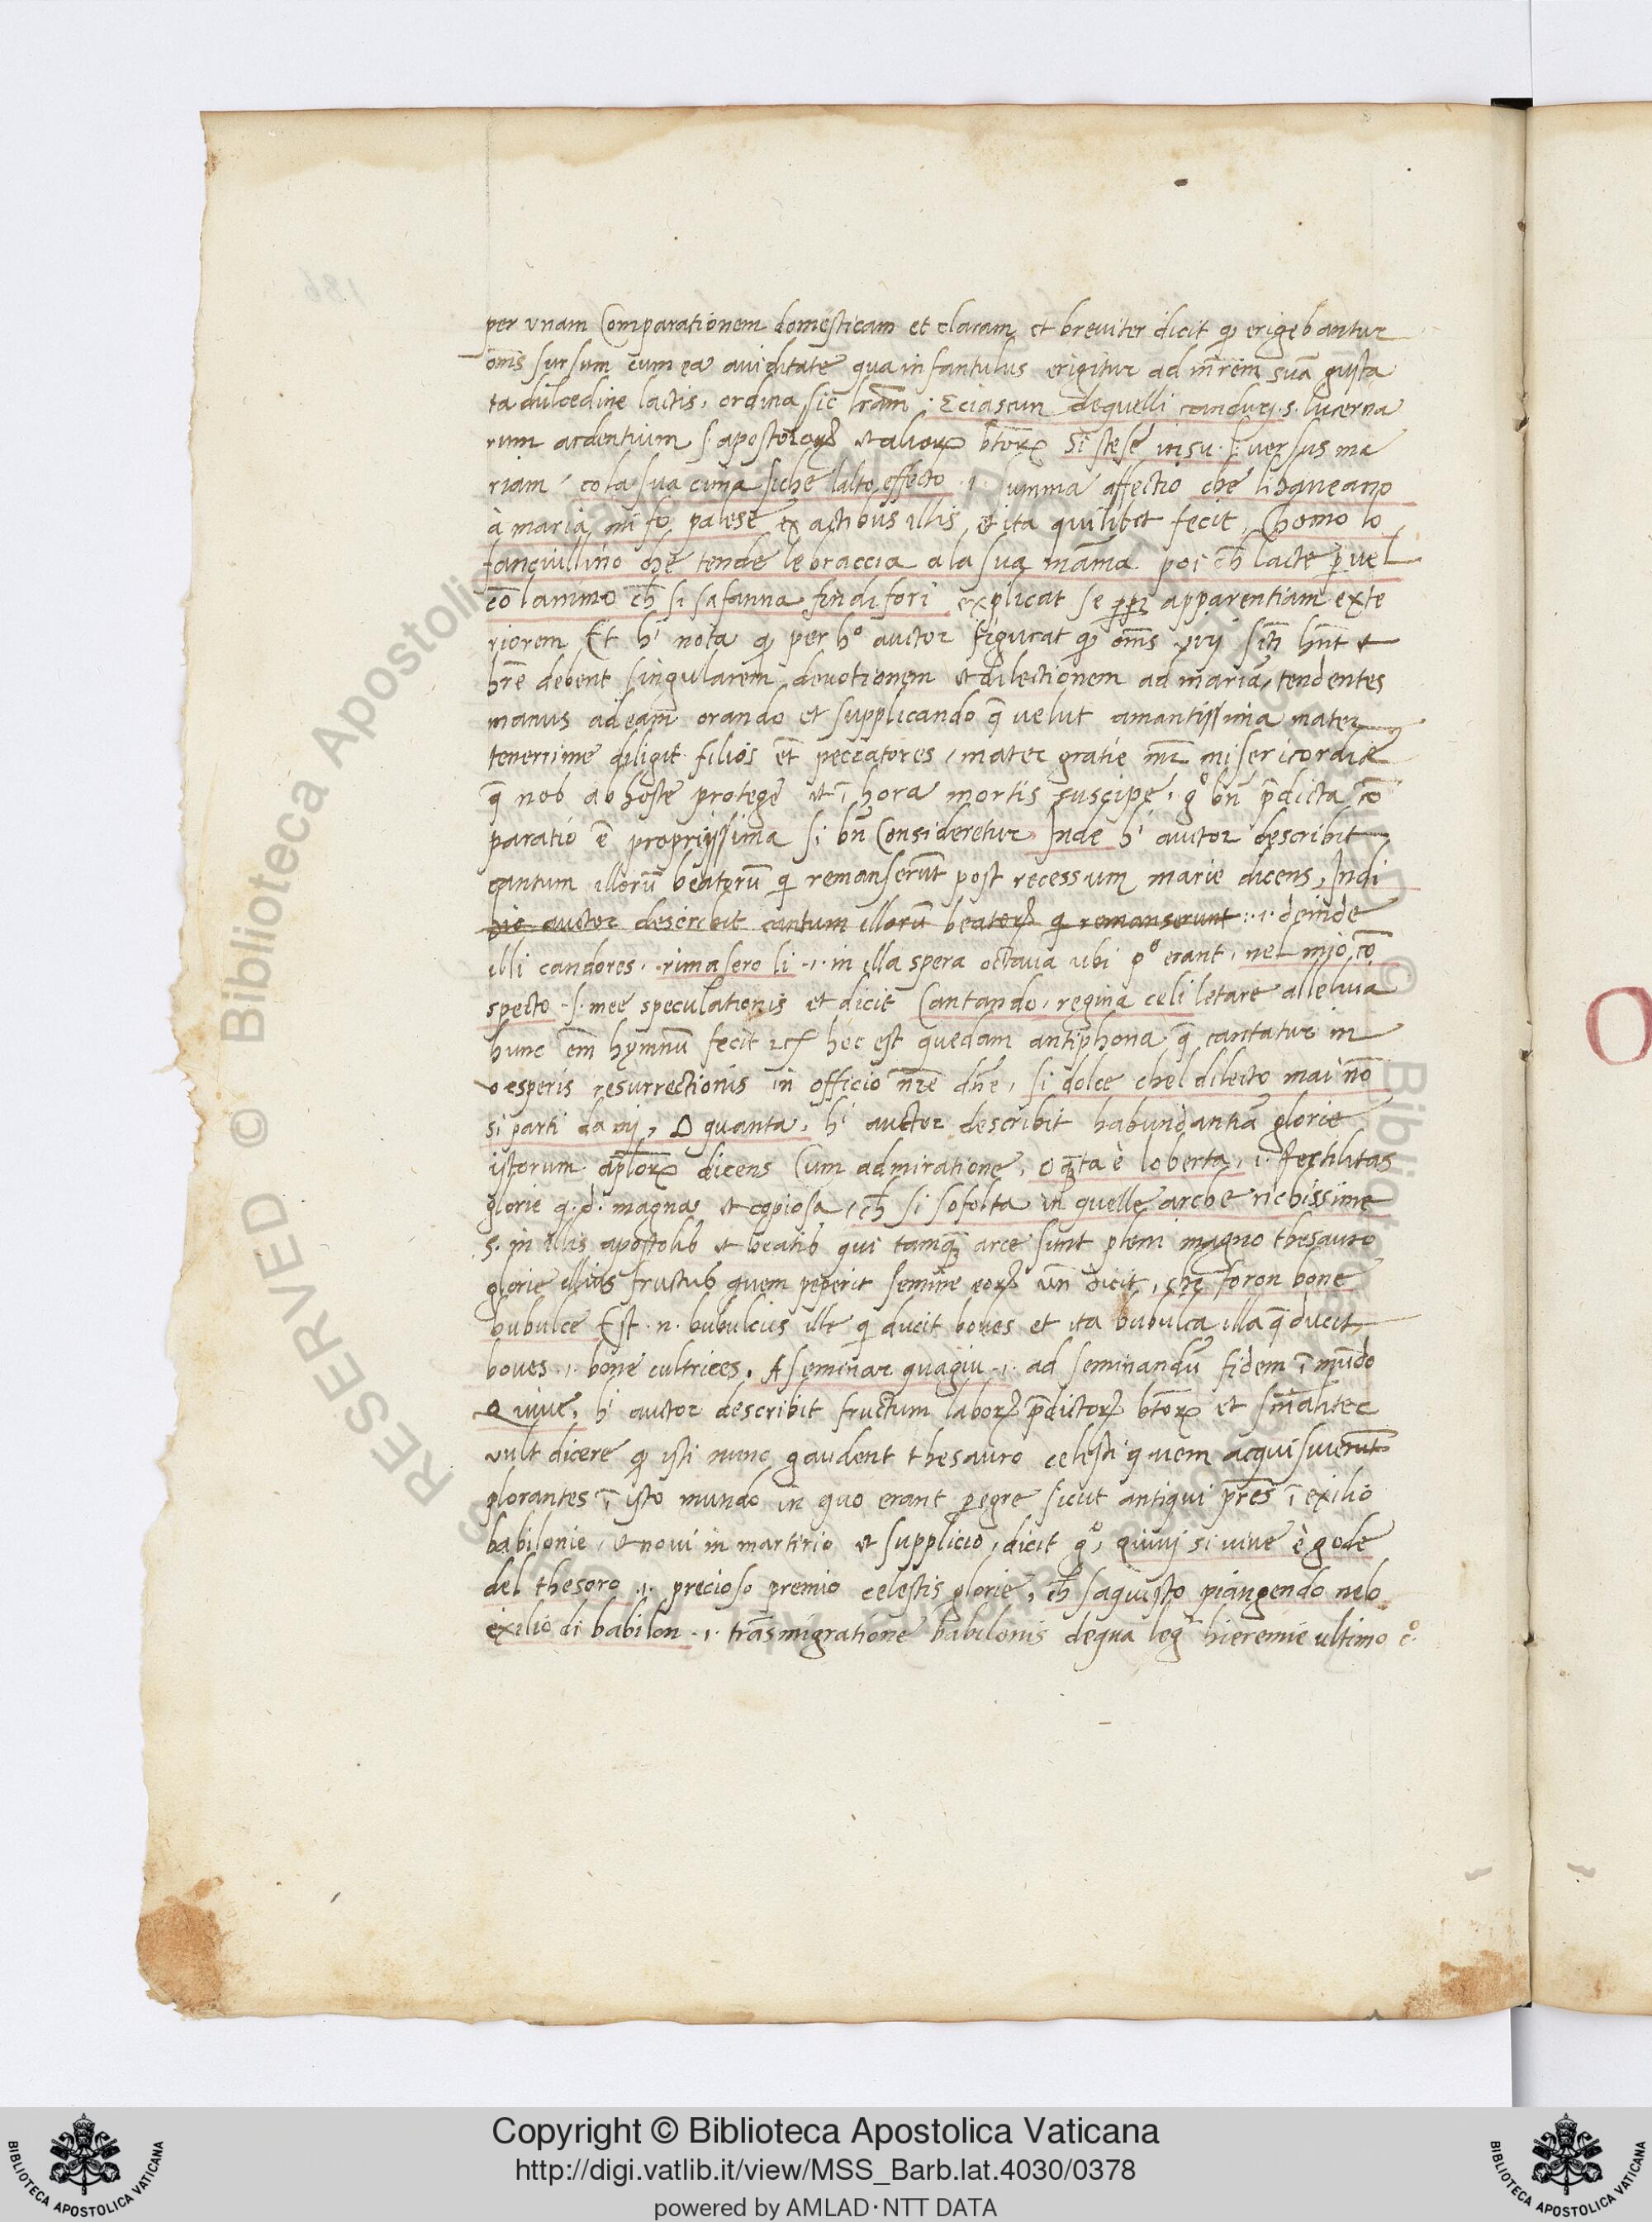 per vnam Comparationem domesticam et claram et breuiter dicit qꝫ erigebantur
om̄s sursum cum ea auiditate qua infantulus erigitur ad m̄rem suā gusta
ta dulcedine lactis, ordina sic lr̄am. E ciascun dequelli canduri .s. lucerna
rum ardentium .s. apostolorꝝ et aliorꝝ btōrꝝ si stese insu .s. uersus ma
riam, co la sua cima siche lalto effecto .i. summa affectio che lihaueano
à maria mi fo palese ex actibus illis, et ita quilibet fecit, Chomo lo
fanciullino che tende le braccia a la sua mām̄a poi ch̄ lacte p̱uel
cō lammo ch̄ si safanna findifori explicat se apparentiam exte
riorem Et h' nota qꝫ per hº auctor figurat qꝫ om̄s viri scti hn̄t et
hr̄e debent singularem deuotionem et dilectionem ad mariā, tendentes
manus ad eam orando et supplicando q̄ uelut amantissima mater
tenerrime diligit filios et̄ peccatores, mater gratie mr̄ misericordie
q̄ nob ab hoste protege et ī hora mortis suscipe, gº bn̄ p̄dicta cō
paratio ē propriissima si bn̄ Consideretur Inde h' auctor describit
cantum illorū beatorū qi remanserūt post recessum marie dicens, Indi
hic auctor describit cantum illorū beatorꝝ qi remanserunt .i. deinde
illi candores, rimasero li .i. in illa spera octaua ubi pº erant, nel mio cō
specto .s. mee speculationis et dicit Cantando, regina celi letare alleluia
hunc em̄ hymnū fecit hec est quedam antiphona q̄ cantatur in
vesperis resurrectionis in officio nr̄e dn̄e, si dolce chel dilecto mai nō
si parti da mj, O quanta, h' auctor describit habundantiā glorie
istorum apl̄orꝝ dicens Cum admiratione, o q̄ta è loberta, .i. fertilitas
glorie q. d. magna et copiosa, ch̄ si sofolta in quelle arche richissime
.s. in illis apostolis et beatis qui tamqꝫ arce sunt pleni magno thesauro
glorie illius fructus quem peperit semine eorꝝ un̄ dicit, che foron bone
bubulce Est .n. bubulcus ille qi ducit boues et ita bubulca illa q̄ ducit
boues .i. bone cultrices. A seminar quagiu .i. ad seminandū fidem ī mūdo
Quiue, h' auctor describit fructum laborꝝ p̄dictorꝝ btōrꝝ et sn̄ialiter
uult dicere qꝫ isti nunc gaudent thesauro celesti quem acquisiuerunt
plorantes ī isto mundo in quo erant p̱egre sicut antiqui pr̄es ī exilio
babilonie, et noui in martirio et supplicio, dicit gº, Quiuj si uiue è gode
del thesoro .i. precioso premio celestis glorie, ch̄ saquisto piangendo nelo
exilio di babilon .i. trāsmigratione babilonis dequa leg hieremie ultimo cº.
O
RESERVED © Biblioteca Apostolica Vaticana
Copyright © Biblioteca Apostolica Vaticana
http://digi.vatlib.it/view/MSS_Barb.lat.4030/0378
powered by AMLAD·NTT DATA
BIBLIOTECA APOSTOLICA VATICANA
BIBLIOTECA APOSTOLICA VATICANA